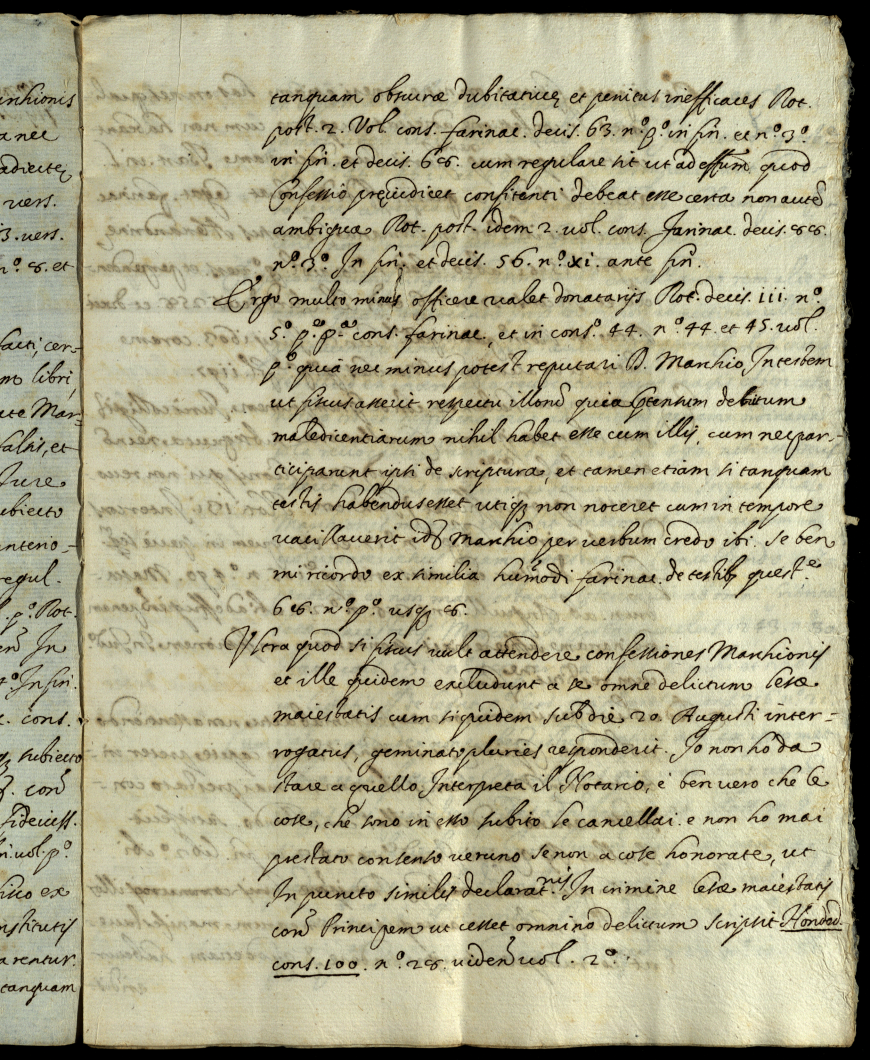 urchionis
a nec
adiecte
vers.
3. vers.
n.º 8. et
facti, cer-
m libri,
ute Mar-
falsis, et
Jure
ubiecto
interio-
regul.
p.º Rot.
In
t.º In fin.
cons.
subiecto
con
fideiuss.
n. vol. p.º
ex
nstitutis
arentur.
tanquam
tanquam obscuræ dubitatiuæ et penitus inefficaces Rot.
post. 2. Vol. cons. farinac. decis. 63. n.º p.º in fin. et n.º 3.º
in fin. et decis. 68. cum regulare sit ut ad effum quod
Confessio preiudicet confitenti debeat esse certa non autē
ambigua Rot. post. idem 2. vol. cons. farinac. decis. 88.
n.º 3.º In fin. et decis. 56. n.º xi. ante fin.
Ergo multo minus officere valet donatarijs Rot. decis. 111. n.º
5.º p.e p.æ cons. farinac., et in cons.º 44. n.º 44. et 45. vol.
p.º quā nec minus potest reputari D. Marchio In testem
ut fiscus asserit respectu illorū quia contentum debitum
maledicentiarum nihil habet esse cum illis, cum nec par-
ticiparunt ipsi de scriptura, et tamen etiam si tanquam
testis habendus esset utiq; non noceret cum in tempore
vacillauerit idē Marchio per verbum credo ibi. se ben
mi ricordo ex similia humōdi farinac. de testib; quest.e
68. n.º p.º usq; 8.
Vltra quod si fiscus vult attendere confessiones Marchionis
et ille quidem excludunt a se omne delictum lesæ
maiestatis cum siquidem sub die 20. Augusti inter-
rogatus, geminato pluries responderit. Io non ho da
stare a quello, Interpreta il Notario, è ben vero che le
cose, che sono in esso subito le cancellai. e non ho mai
prestato consenso veruno se non a cose honorate, ut
In puncto similis declarat.nis In crimine lesæ maiestatis
con Principem ut cesset omnino delictum scripsit Honded.
cons. 100. n.º 28. viden vol. 2.º